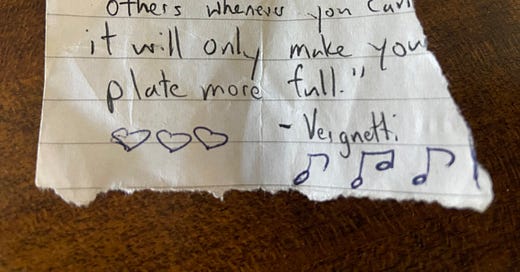 others whenever you can
it will only make you
plate more full."
- Vergnetti